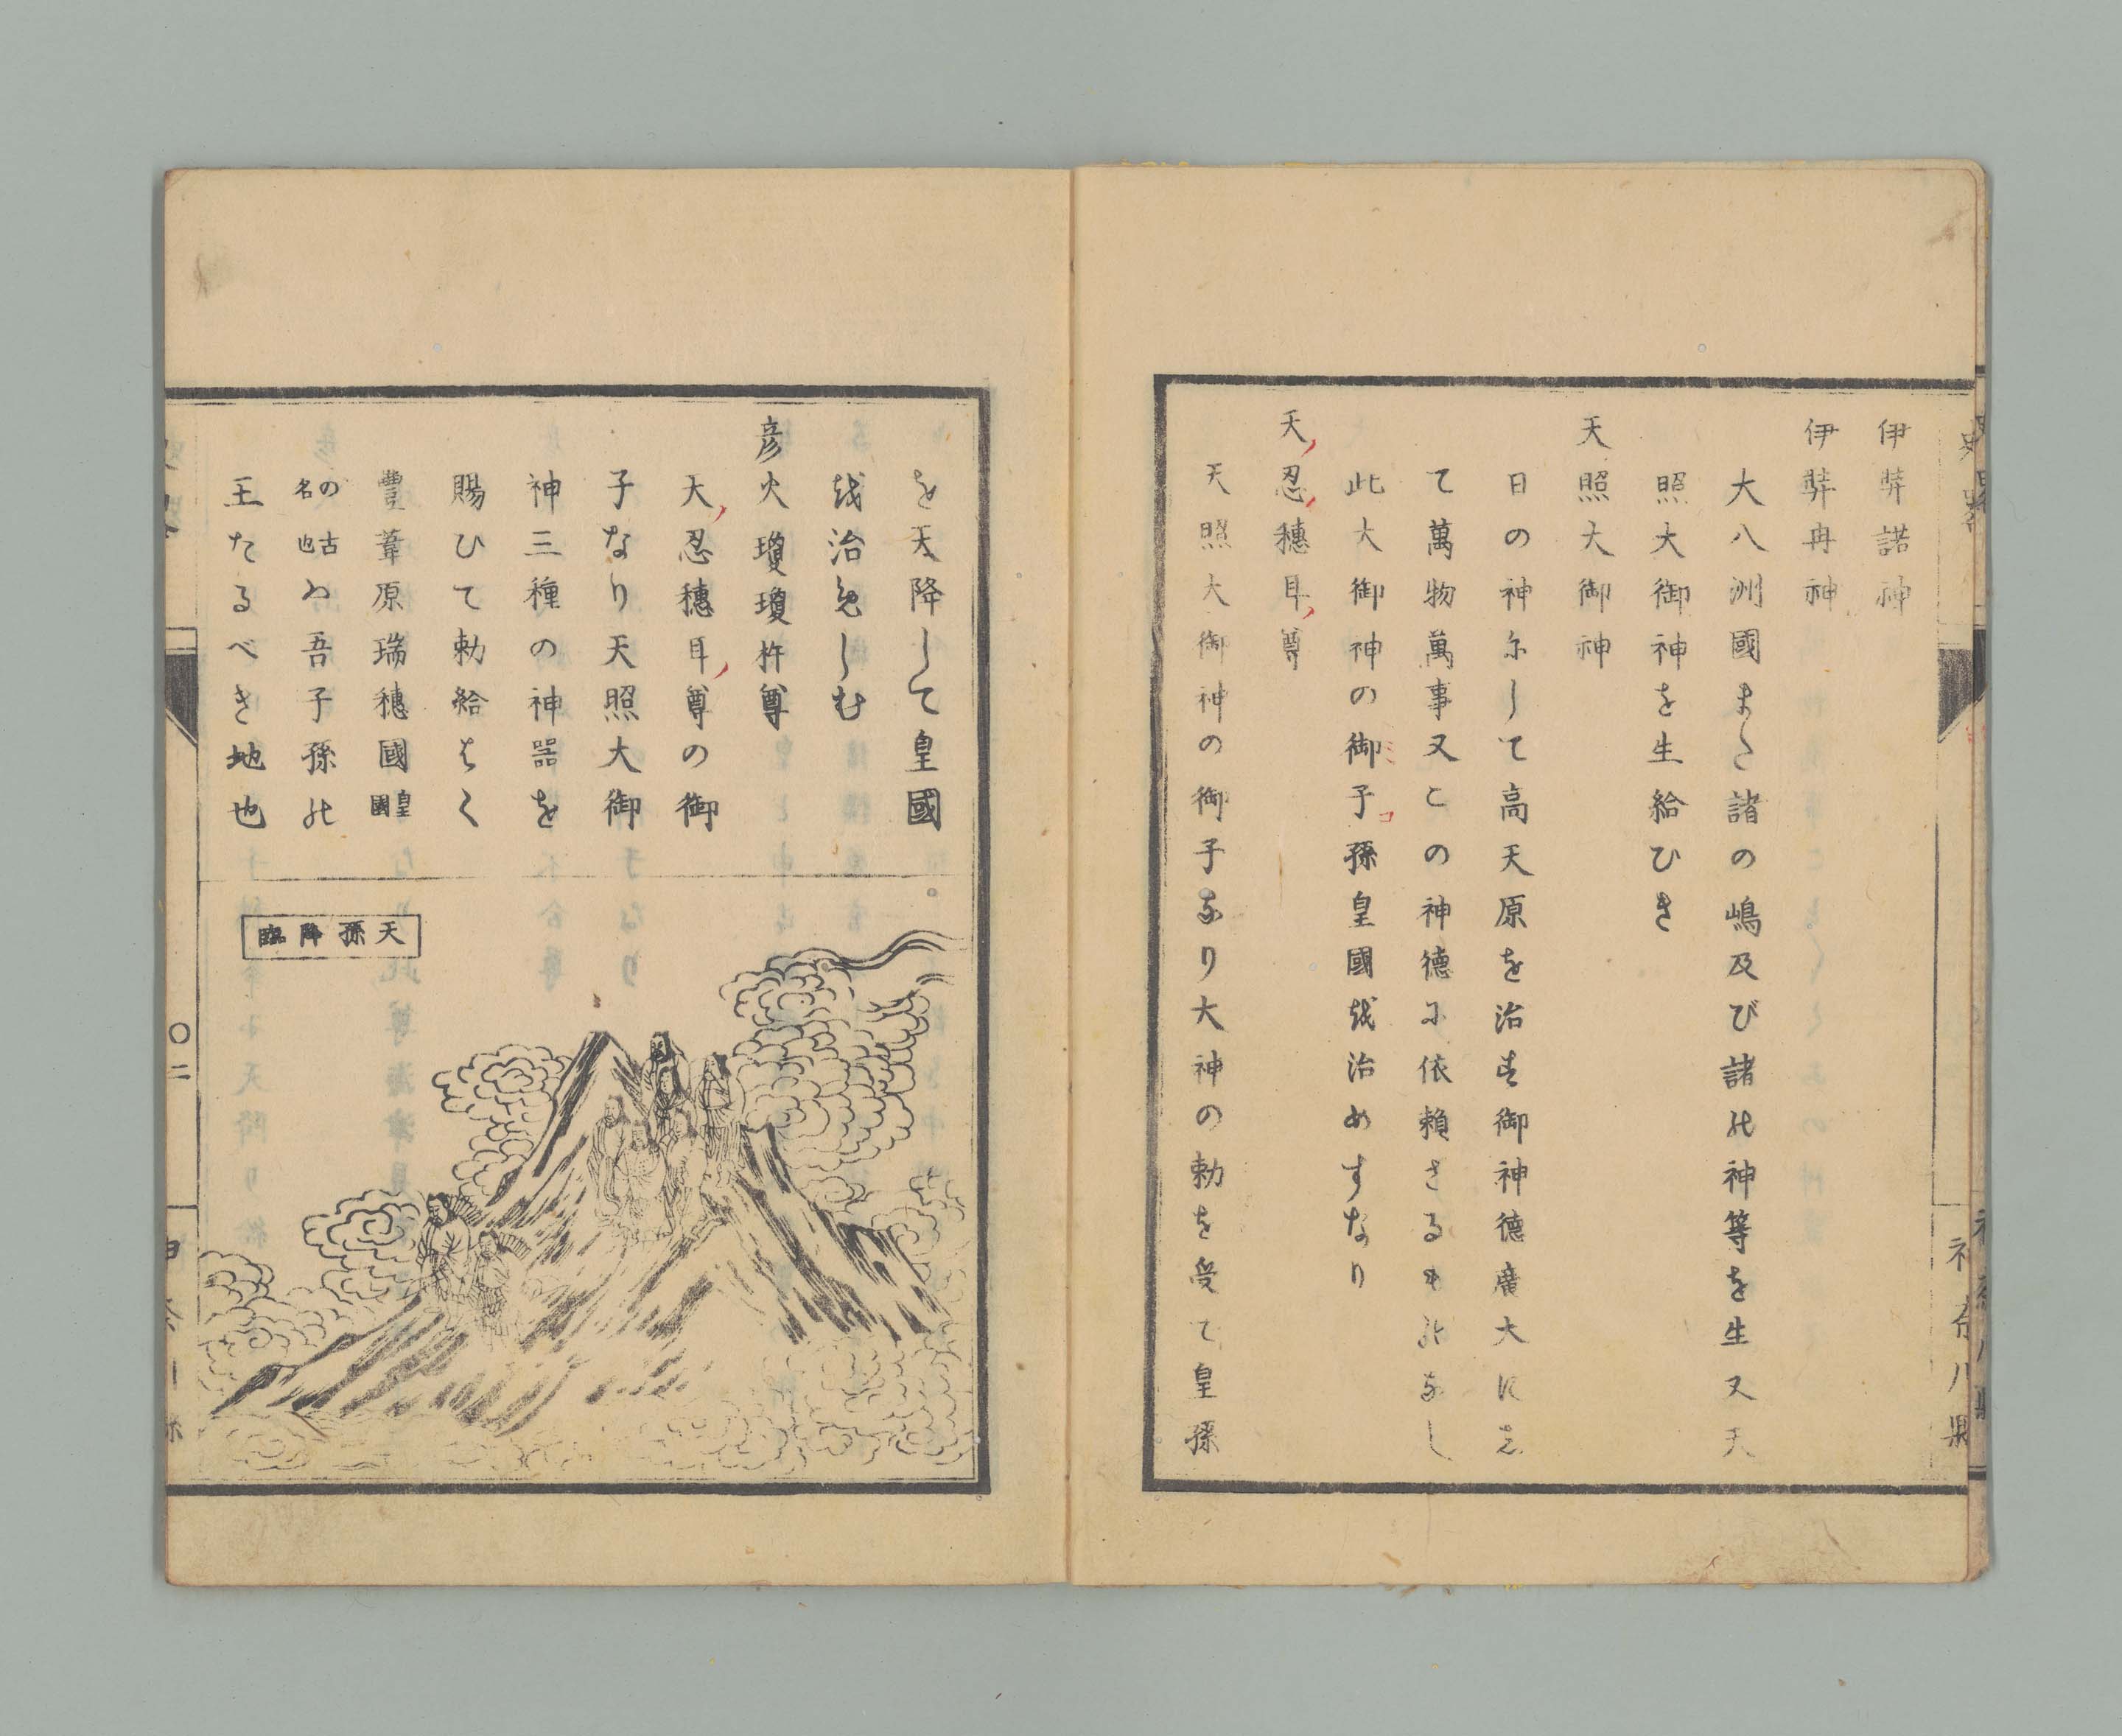 伊弉諾神
伊弉冉神
大八洲國また諸の嶋及び諸の神等を生又天
照大御神を生給ひき
天照大御神
日の神にして高天原を治す御神德廣大にし
て萬物萬事又この神德に依賴さるものなし
此大御神の御子孫皇國を治めすなり
ミコ
天忍穗耳尊
天照大御神の御子なり大神の勅を受て皇孫
を天降して皇國
を治めしむ
彦火瓊瓊杵尊
天忍穗耳尊の御
子なり天照大御
神三種の神器を
賜ひて勅給はく
豐葦原瑞穗國皇國
の古名也は吾子孫の
王たるべき地也
天孫降臨
史畧
神奈川縣
〇二